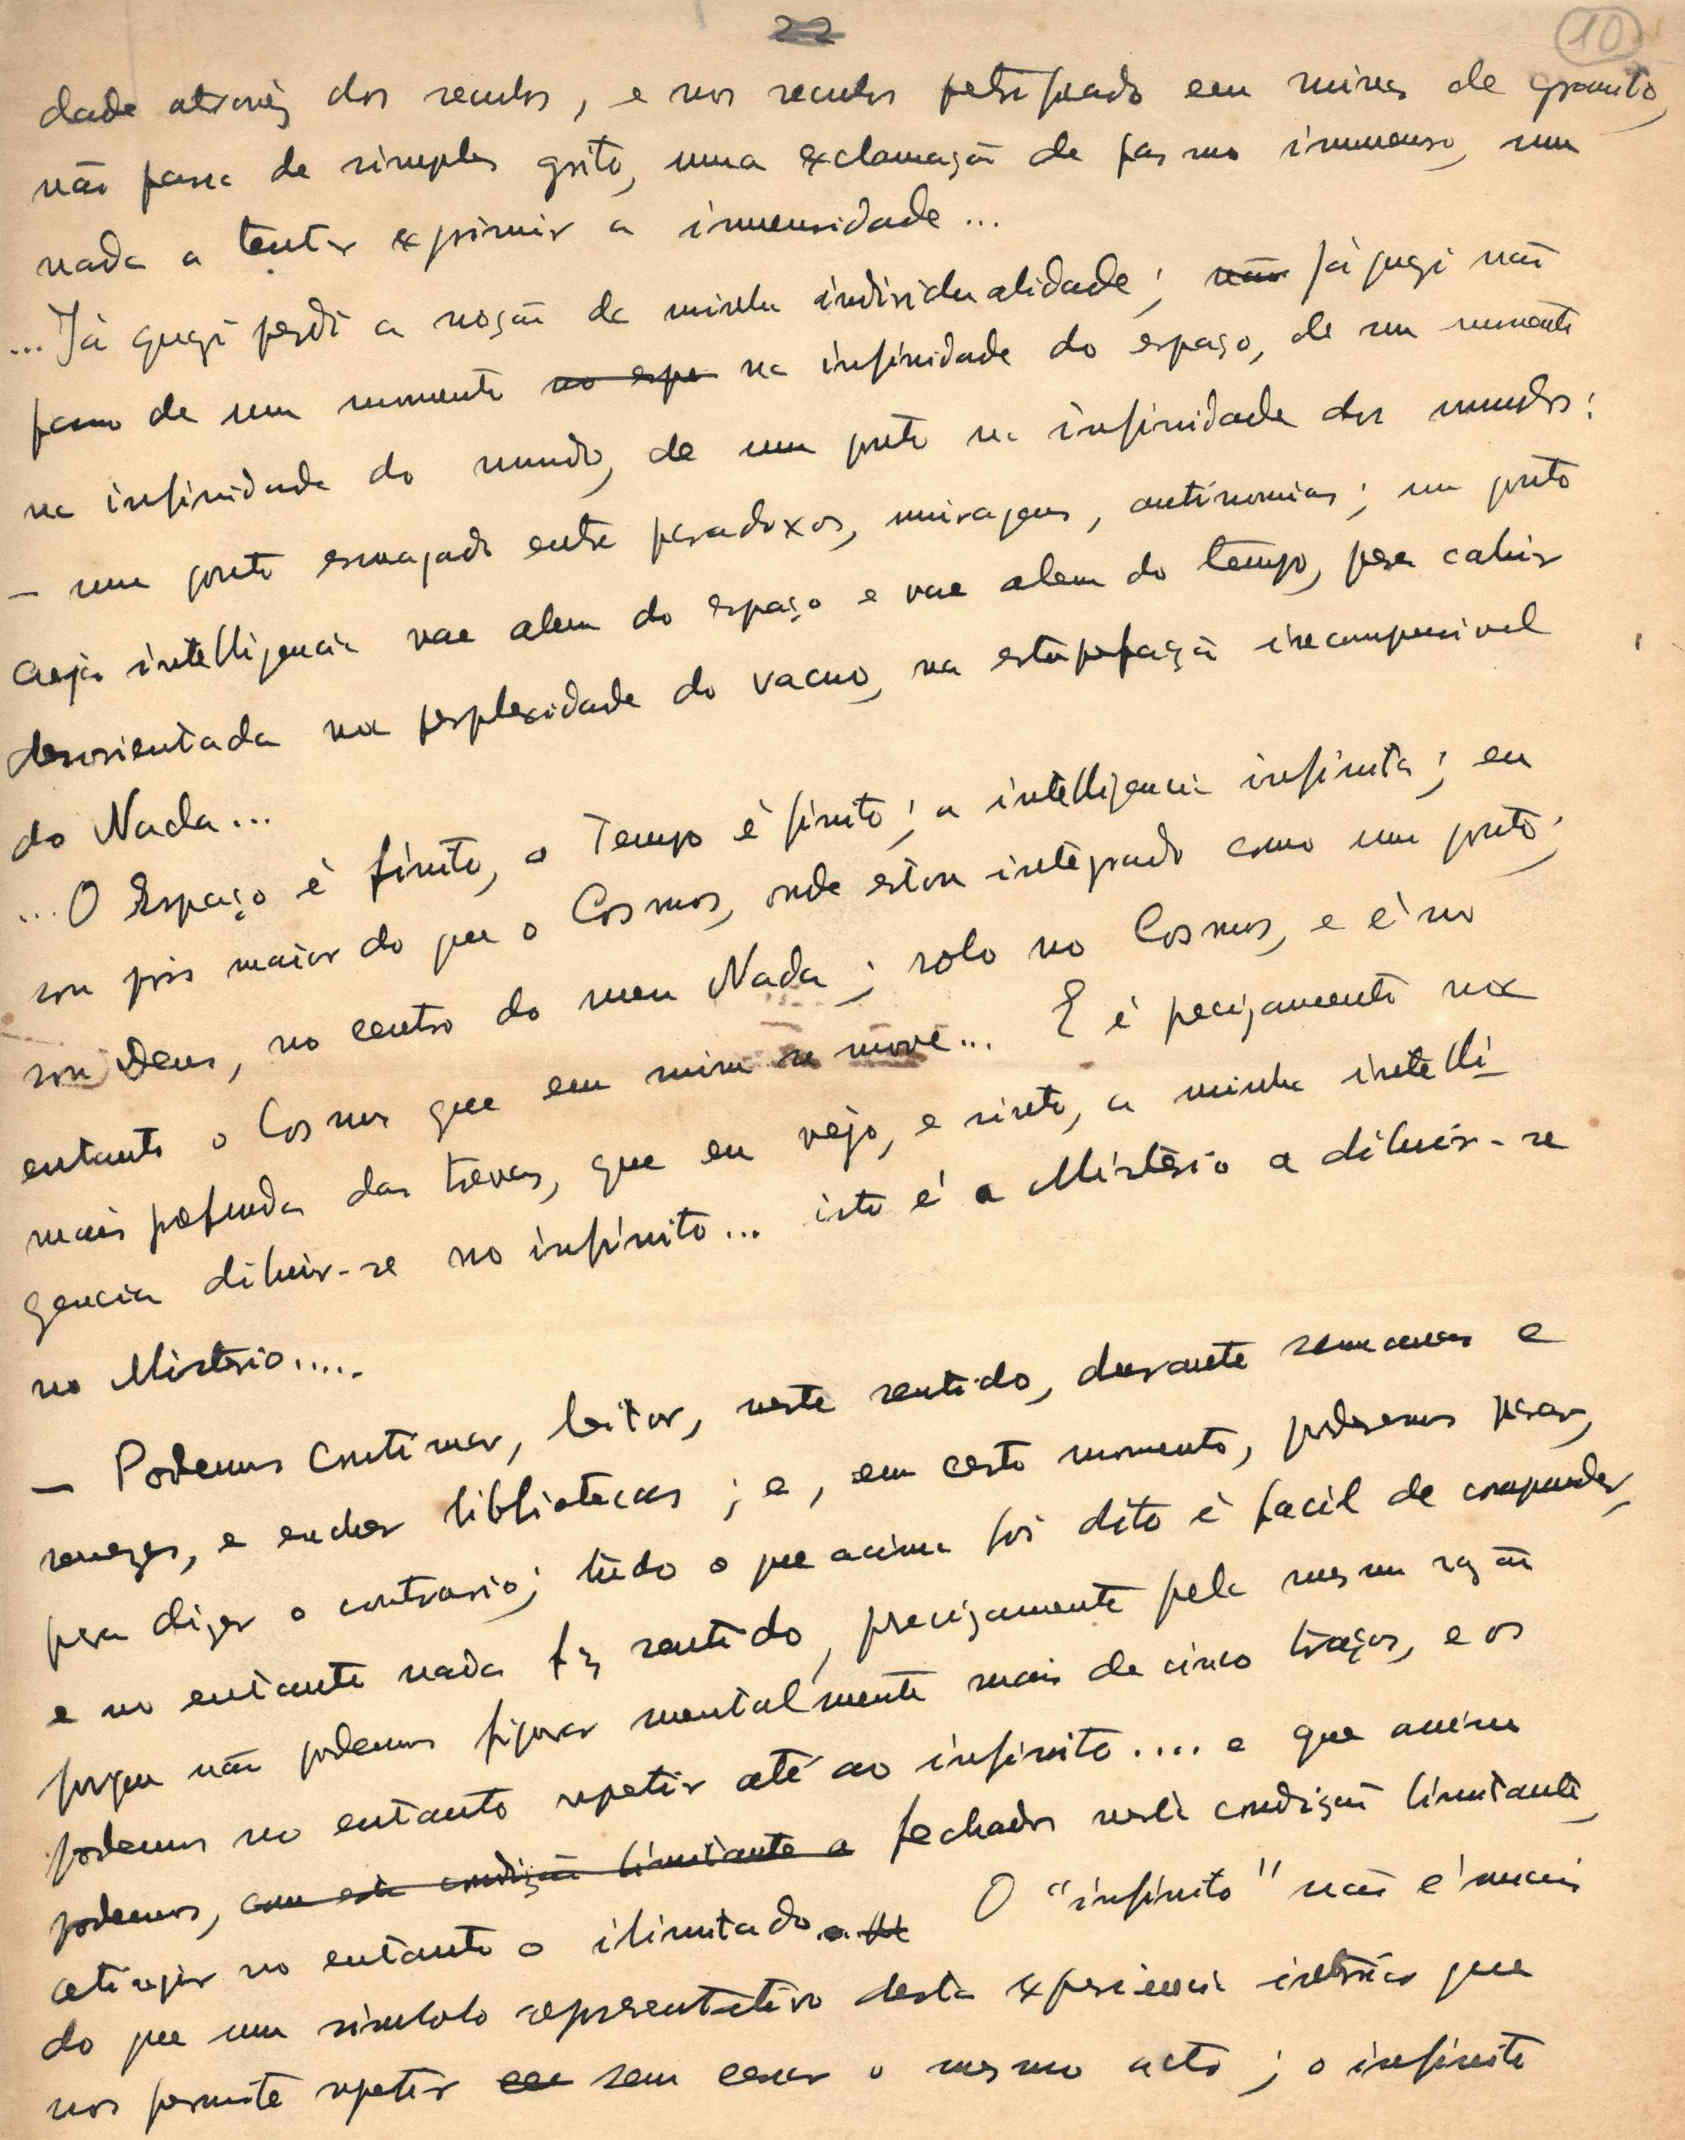 22
10
dade atravéz dos seculos, e nos seculos petrificado em ruinas de granito,
não passa de simples grito, uma exclamação de pasmo immenso, um
nada a tentar exprimir a immensidade...
...Já quazi perdi a noção da minha individualidade; não já quazi não
passo de um momento no espa na infinidade do espaço, de um momento
na infinidade do mundo, de um ponto na infinidade dos mundos:
— um ponto esmagado entre paradoxos, miragens, antinomias; um ponto
cuja intelligencia vae alem do espaço e vae alem do tempo, para cahir
desorientada na perplexidade do vacuo, na estupefação
do Nada...
...O Espaço é finito, o Tempo é finito; a intelligencia infinita; eu
sou pois maior do que o Cosmos, onde estou integrado como um ponto;
sou Deus, no centro do meu Nada; rolo no Cosmos, e é no
entanto o Cosmos que em mim se move... E é precizamente na
mais profunda das trevas, que eu vejo, e sinto, a minha intelli-
gencia diluir-se no infinito... isto é o Misterio a diluir-se
no Misterio.....
— Podemos continuar, leitor, neste sentido, durante semanas e
mezes, e encher bibliotecas; e, em certo momento, poderemos parar,
para dizer o contrario; tudo o que acima foi dito é facil de compreender,
e no entanto nada faz sentido, precizamente pela mesma razão
porque não podemos figurar mentalmente mais de cinco traços, e os
podemos no entanto repetir até ao infinito.... e que assim
podemos, com esta condição limitante a fechados nesta condição limitante,
atingir no entanto o ilimitado. O "infinito" não é mais
do que um simbolo representativo desta experiencia que
nos permite repetir sem cessar o mesmo acto; o infinito